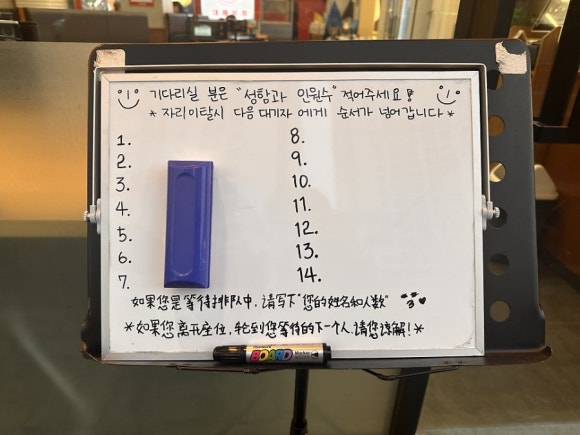 기다리실 분은 "성함과 인원수" 적어주세요!
* 자리이탈시 다음 대기자 에게 순서가 넘어갑니다 *
1.
2.
3.
4.
5.
6.
7.
8.
9.
10.
11.
12.
13.
14.
如果您是等待排队中, 请写下"您的姓名和人数"
*如果您离开座位, 轮到您等待的下一个人, 请您谅解! *
BOARD
Marker